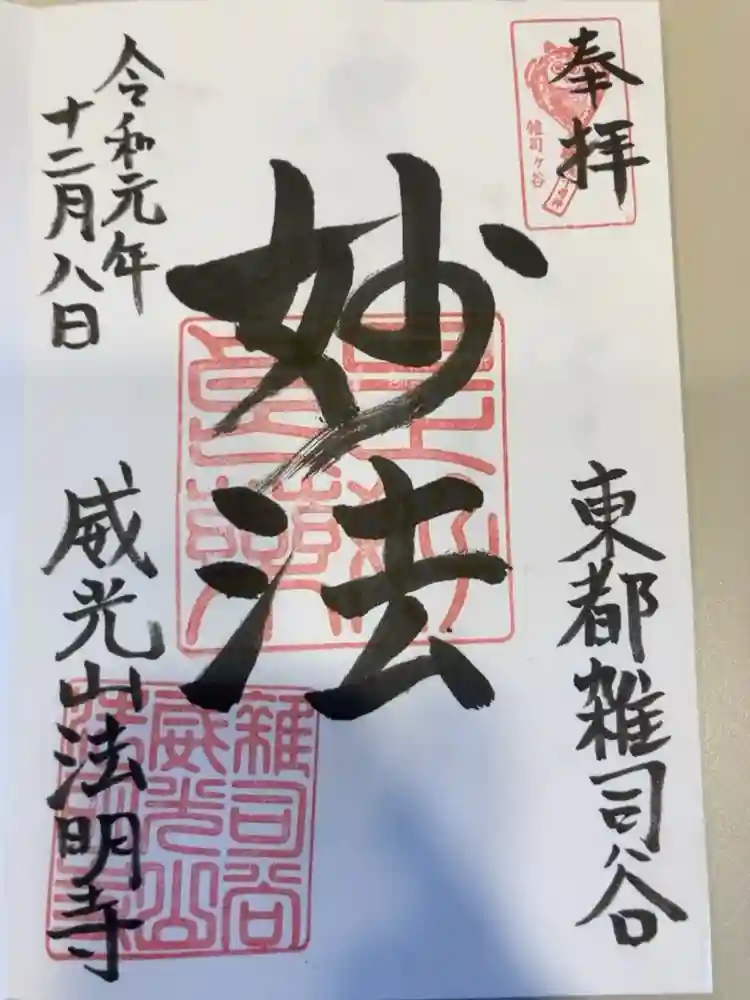 奉拝
雑司ヶ谷
東都雑司谷
妙法
令和元年
十二月八日
威光山法明寺
雑司谷
威光山
法明寺